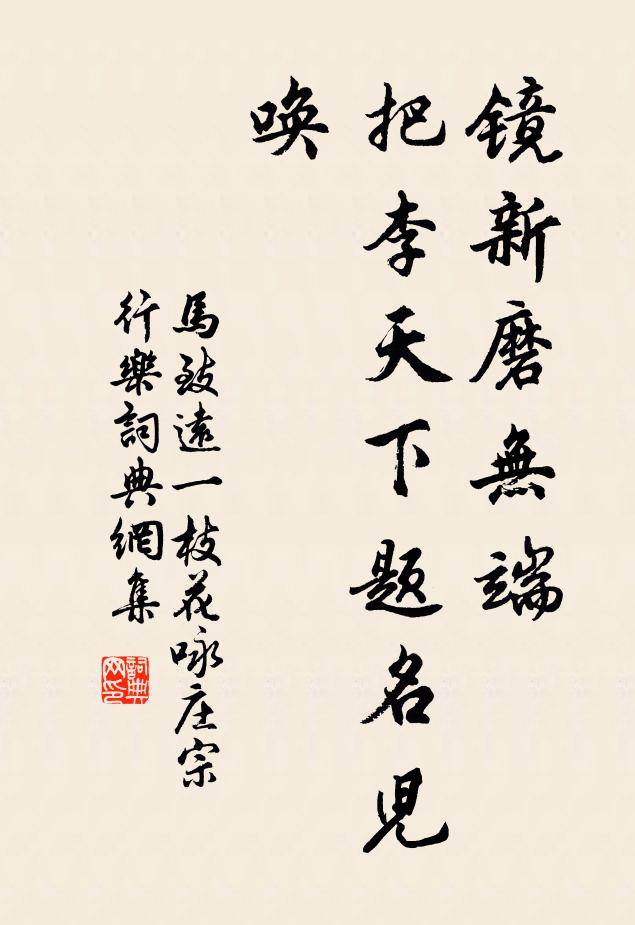 镜新磨無端
把李天下题名児
唤
馬致遠一枝花咏庄宗
行樂詞典網集
詞典
网印